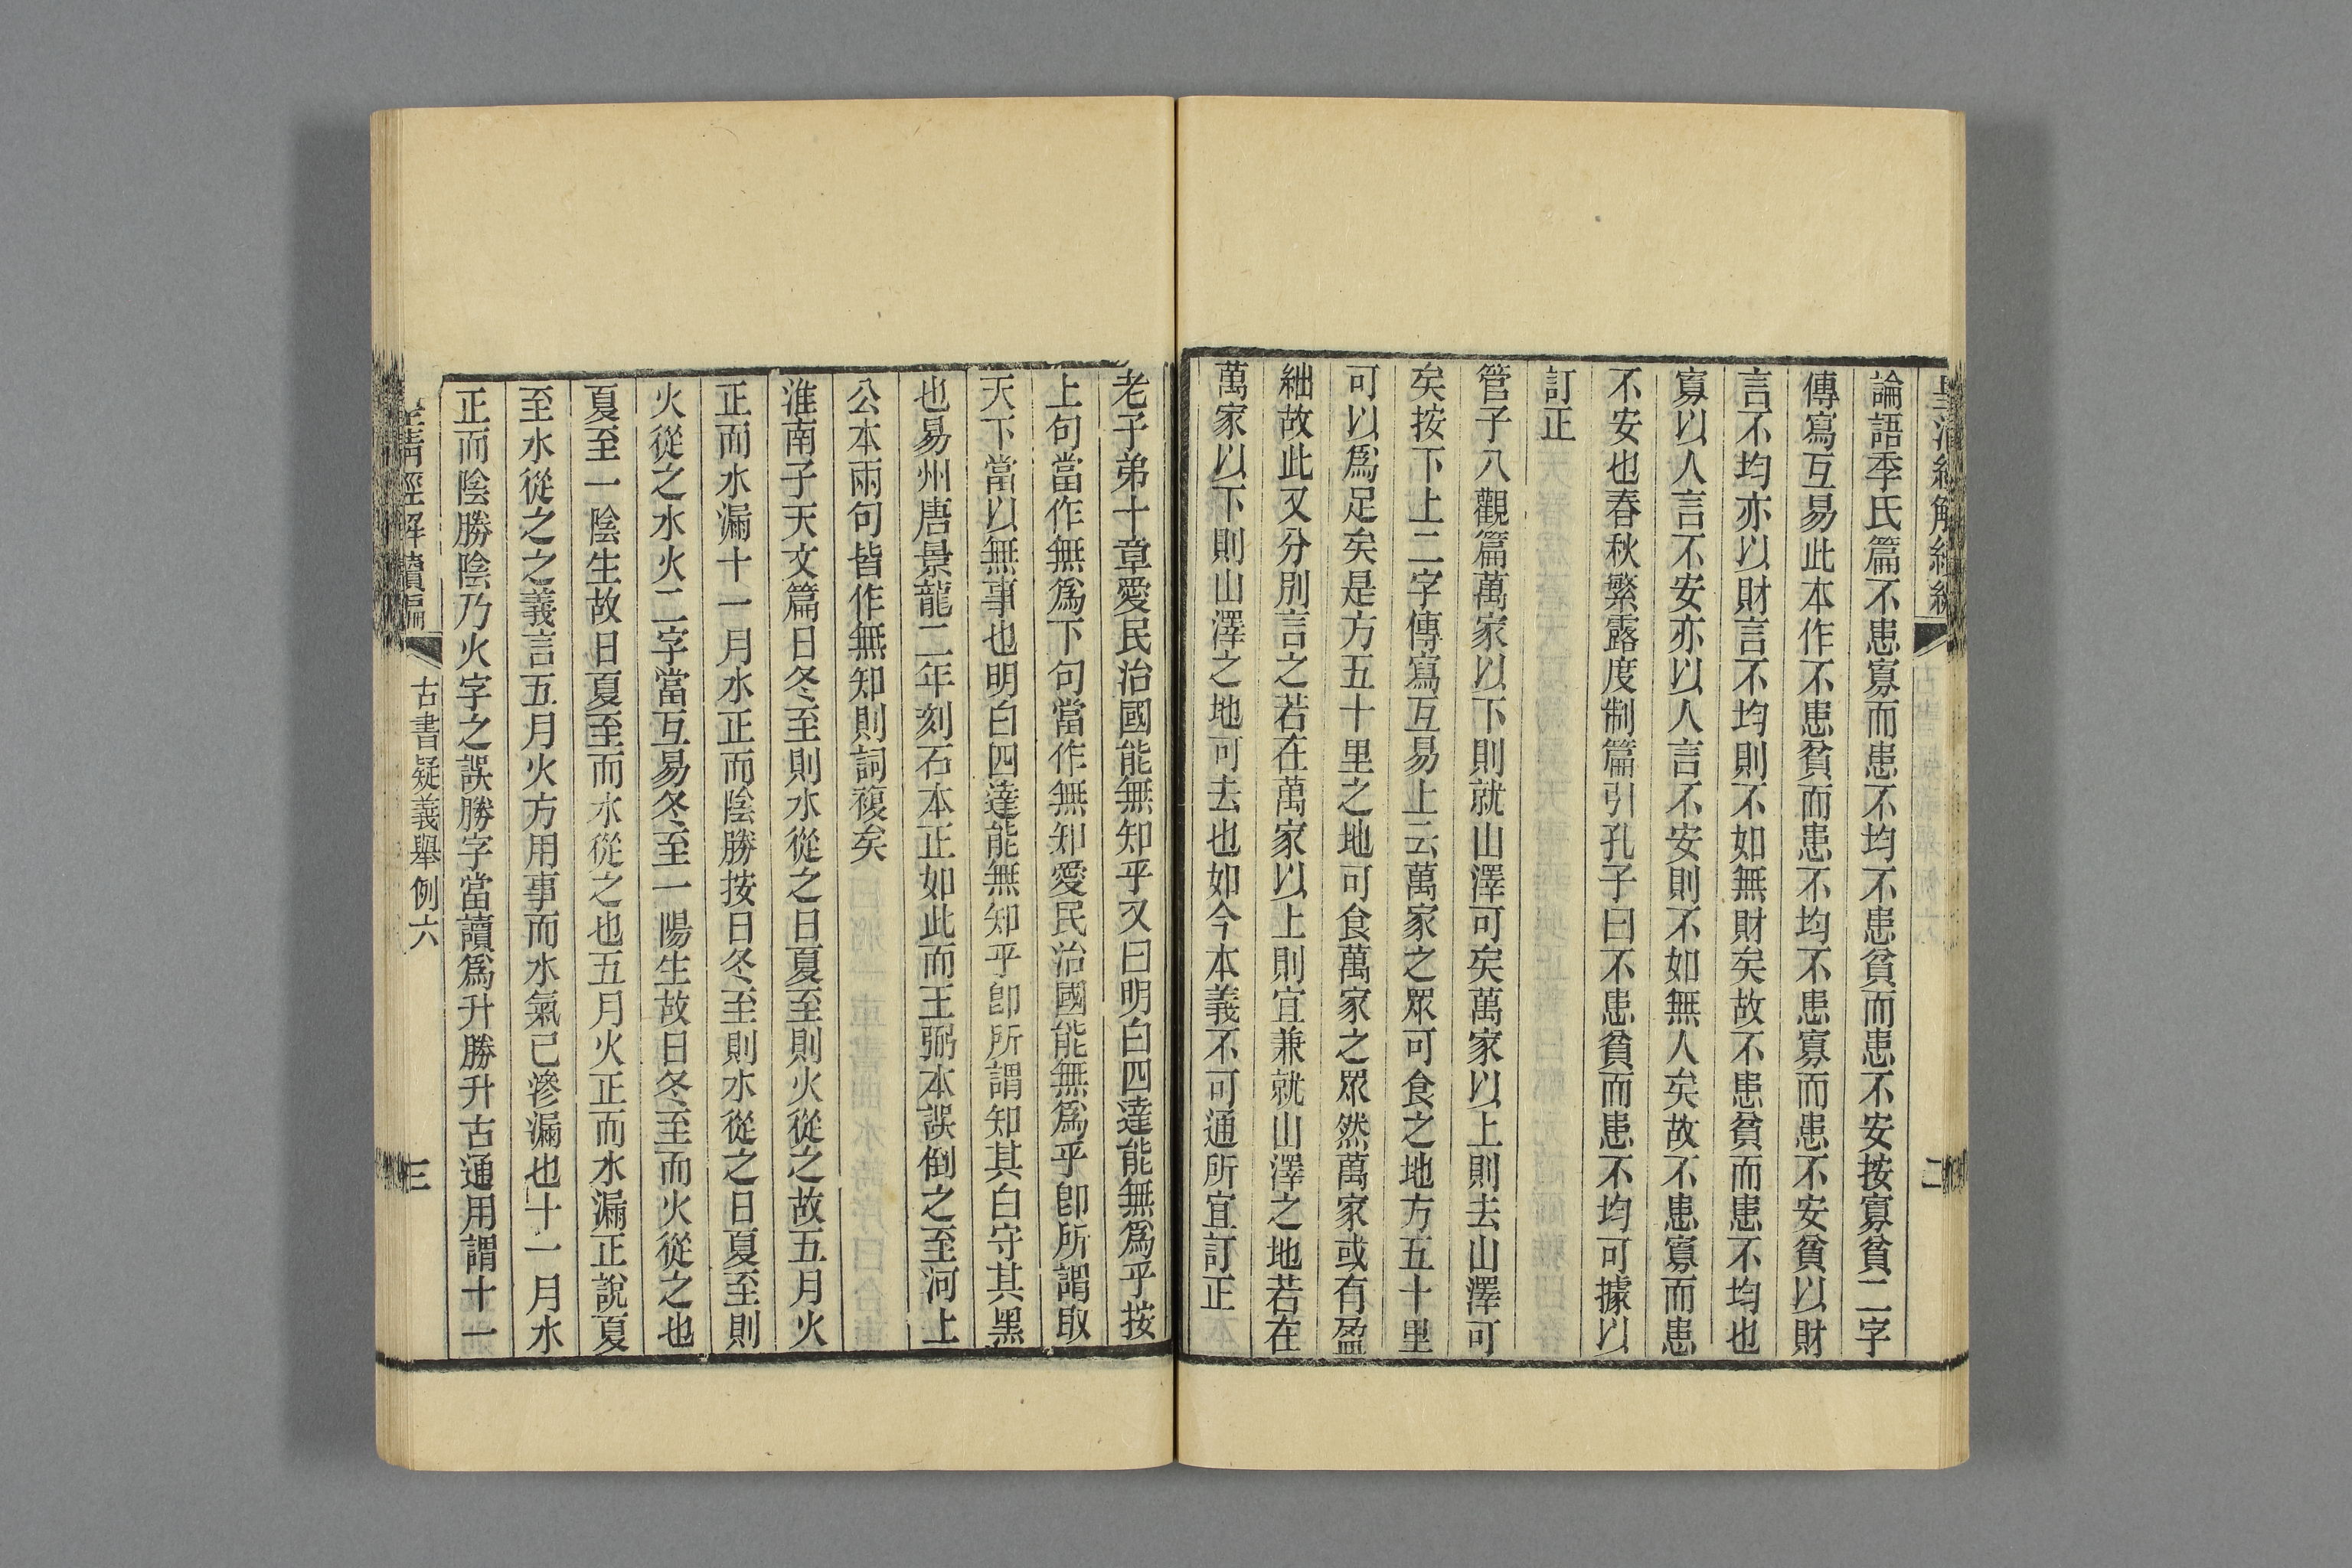 論語季氏篇不患寡而患不均不患貧而患不安按寡貧二字
傳寫互易此本作不患貧而患不均不患寡而患不安貧以財
言不均亦以財言不均則不如無財矣故不患貧而患不均也
寡以人言不安亦以人言不安則不如無人矣故不患寡而患
不安也春秋繁露度制篇引孔子曰不患貧而患不均可據以
訂正
管子八觀篇萬家以下則就山澤可矣萬家以上則去山澤可
矣按下上二字傳寫互易上云萬家之眾可食之地方五十里
可以爲足矣是方五十里之地可食萬家之眾然萬家或有盈
絀故此又分別言之若在萬家以上則宜兼就山澤之地若在
萬家以下則山澤之地可去也如今本義不可通所宜訂正
二
老子弟十章愛民治國能無知乎又曰明白四達能無爲乎按
上句當作無爲下句當作無知愛民治國能無爲乎卽所謂取
天下當以無事也明白四達能無知乎卽所謂知其白守其黑
也易州唐景龍二年刻石本正如此而王弼本誤倒之至河上
公本兩句皆作無知則詞複矣
淮南子天文篇日冬至則水從之日夏至則火從之故五月火
正而水漏十一月水正而陰勝按日冬至則水從之日夏至則
火從之水火二字當互易冬至一陽生故日冬至而火從之也
夏至一陰生故日夏至而水從之也五月火正而水漏正說夏
至水從之之義言五月火方用事而水氣已滲漏也十一月水
正而陰勝陰乃火字之誤勝字當讀爲升勝升古通用謂十一
皇清經解續編
古書疑義舉例六
三